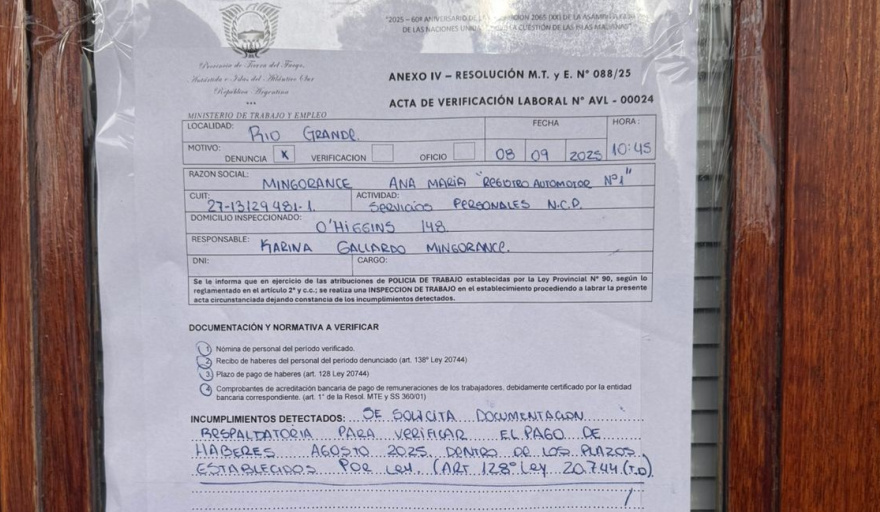 "2025 – 60º ANIVERSARIO DE LA RESOLUCION 2065 (XX) DE LA ASAMBLEA
DE LAS NACIONES UNIDAS LA CUESTIÓN DE LAS ISLAS MALVINAS"
Provincia de Tierra del Fuego,
Antártida e Islas del Atlántico Sur
República Argentina
***
MINISTERIO DE TRABAJO Y EMPLEO
ANEXO IV – RESOLUCIÓN M.T. y E. Nº 088/25
ACTA DE VERIFICACIÓN LABORAL Nº AVL - 00024
LOCALIDAD: RIO GRANDE
FECHA
HORA:
MOTIVO:
DENUNCIA X VERIFICACION OFICIO 08 09 2025 10:45
RAZON SOCIAL: MINGORANCE ANA MARIA "REGISTRO AUTOMOTOR Nº1"
CUIT: 27-13129481-1. ACTIVIDAD: SERVICIOS PERSONALES N.C.P.
DOMICILIO INSPECCIONADO: O'HIGGINS 148.
RESPONSABLE: KARINA GALLARDO MINGORANCE.
DNI: CARGO:
Se le informa que en ejercicio de las atribuciones de POLICIA DE TRABAJO establecidas por la Ley Provincial Nº 90, según lo
reglamentado en el artículo 2º y c.c.; se realiza una INSPECCIÓN DE TRABAJO en el establecimiento procediendo a labrar la presente
acta circunstanciada dejando constancia de los incumplimientos detectados.
DOCUMENTACIÓN Y NORMATIVA A VERIFICAR
1 Nómina de personal del periodo verificado.
2 Recibo de haberes del personal del periodo denunciado (art. 138º Ley 20744)
3 Plazo de pago de haberes (art. 128 Ley 20744)
4 Comprobantes de acreditación bancaria de pago de remuneraciones de los trabajadores, debidamente certificado por la entidad
bancaria correspondiente. (art. 1º de la Resol. MTE y SS 360/01)
INCUMPLIMIENTOS DETECTADOS: SE SOLICITA DOCUMENTACION
RESPALDATORIA PARA VERIFICAR EL PAGO DE
HABERES AGOSTO 2025 DENTRO DE LOS PLAZOS
ESTABLECIDOS POR LEY. (ART 128º LEY 20.744 (T.O)